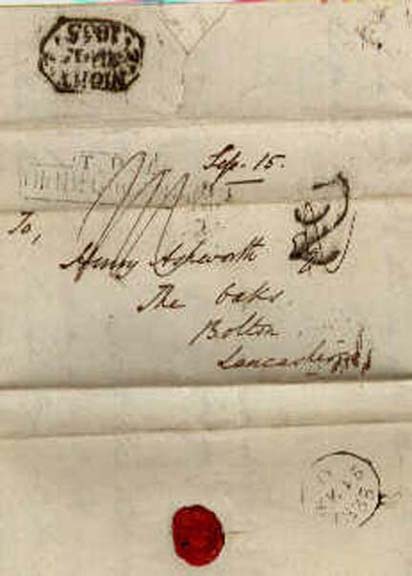 NIGHT
1835
Sep. 15.
To,
Henry Ashworth
The Oaks
Bolton
Lancashire